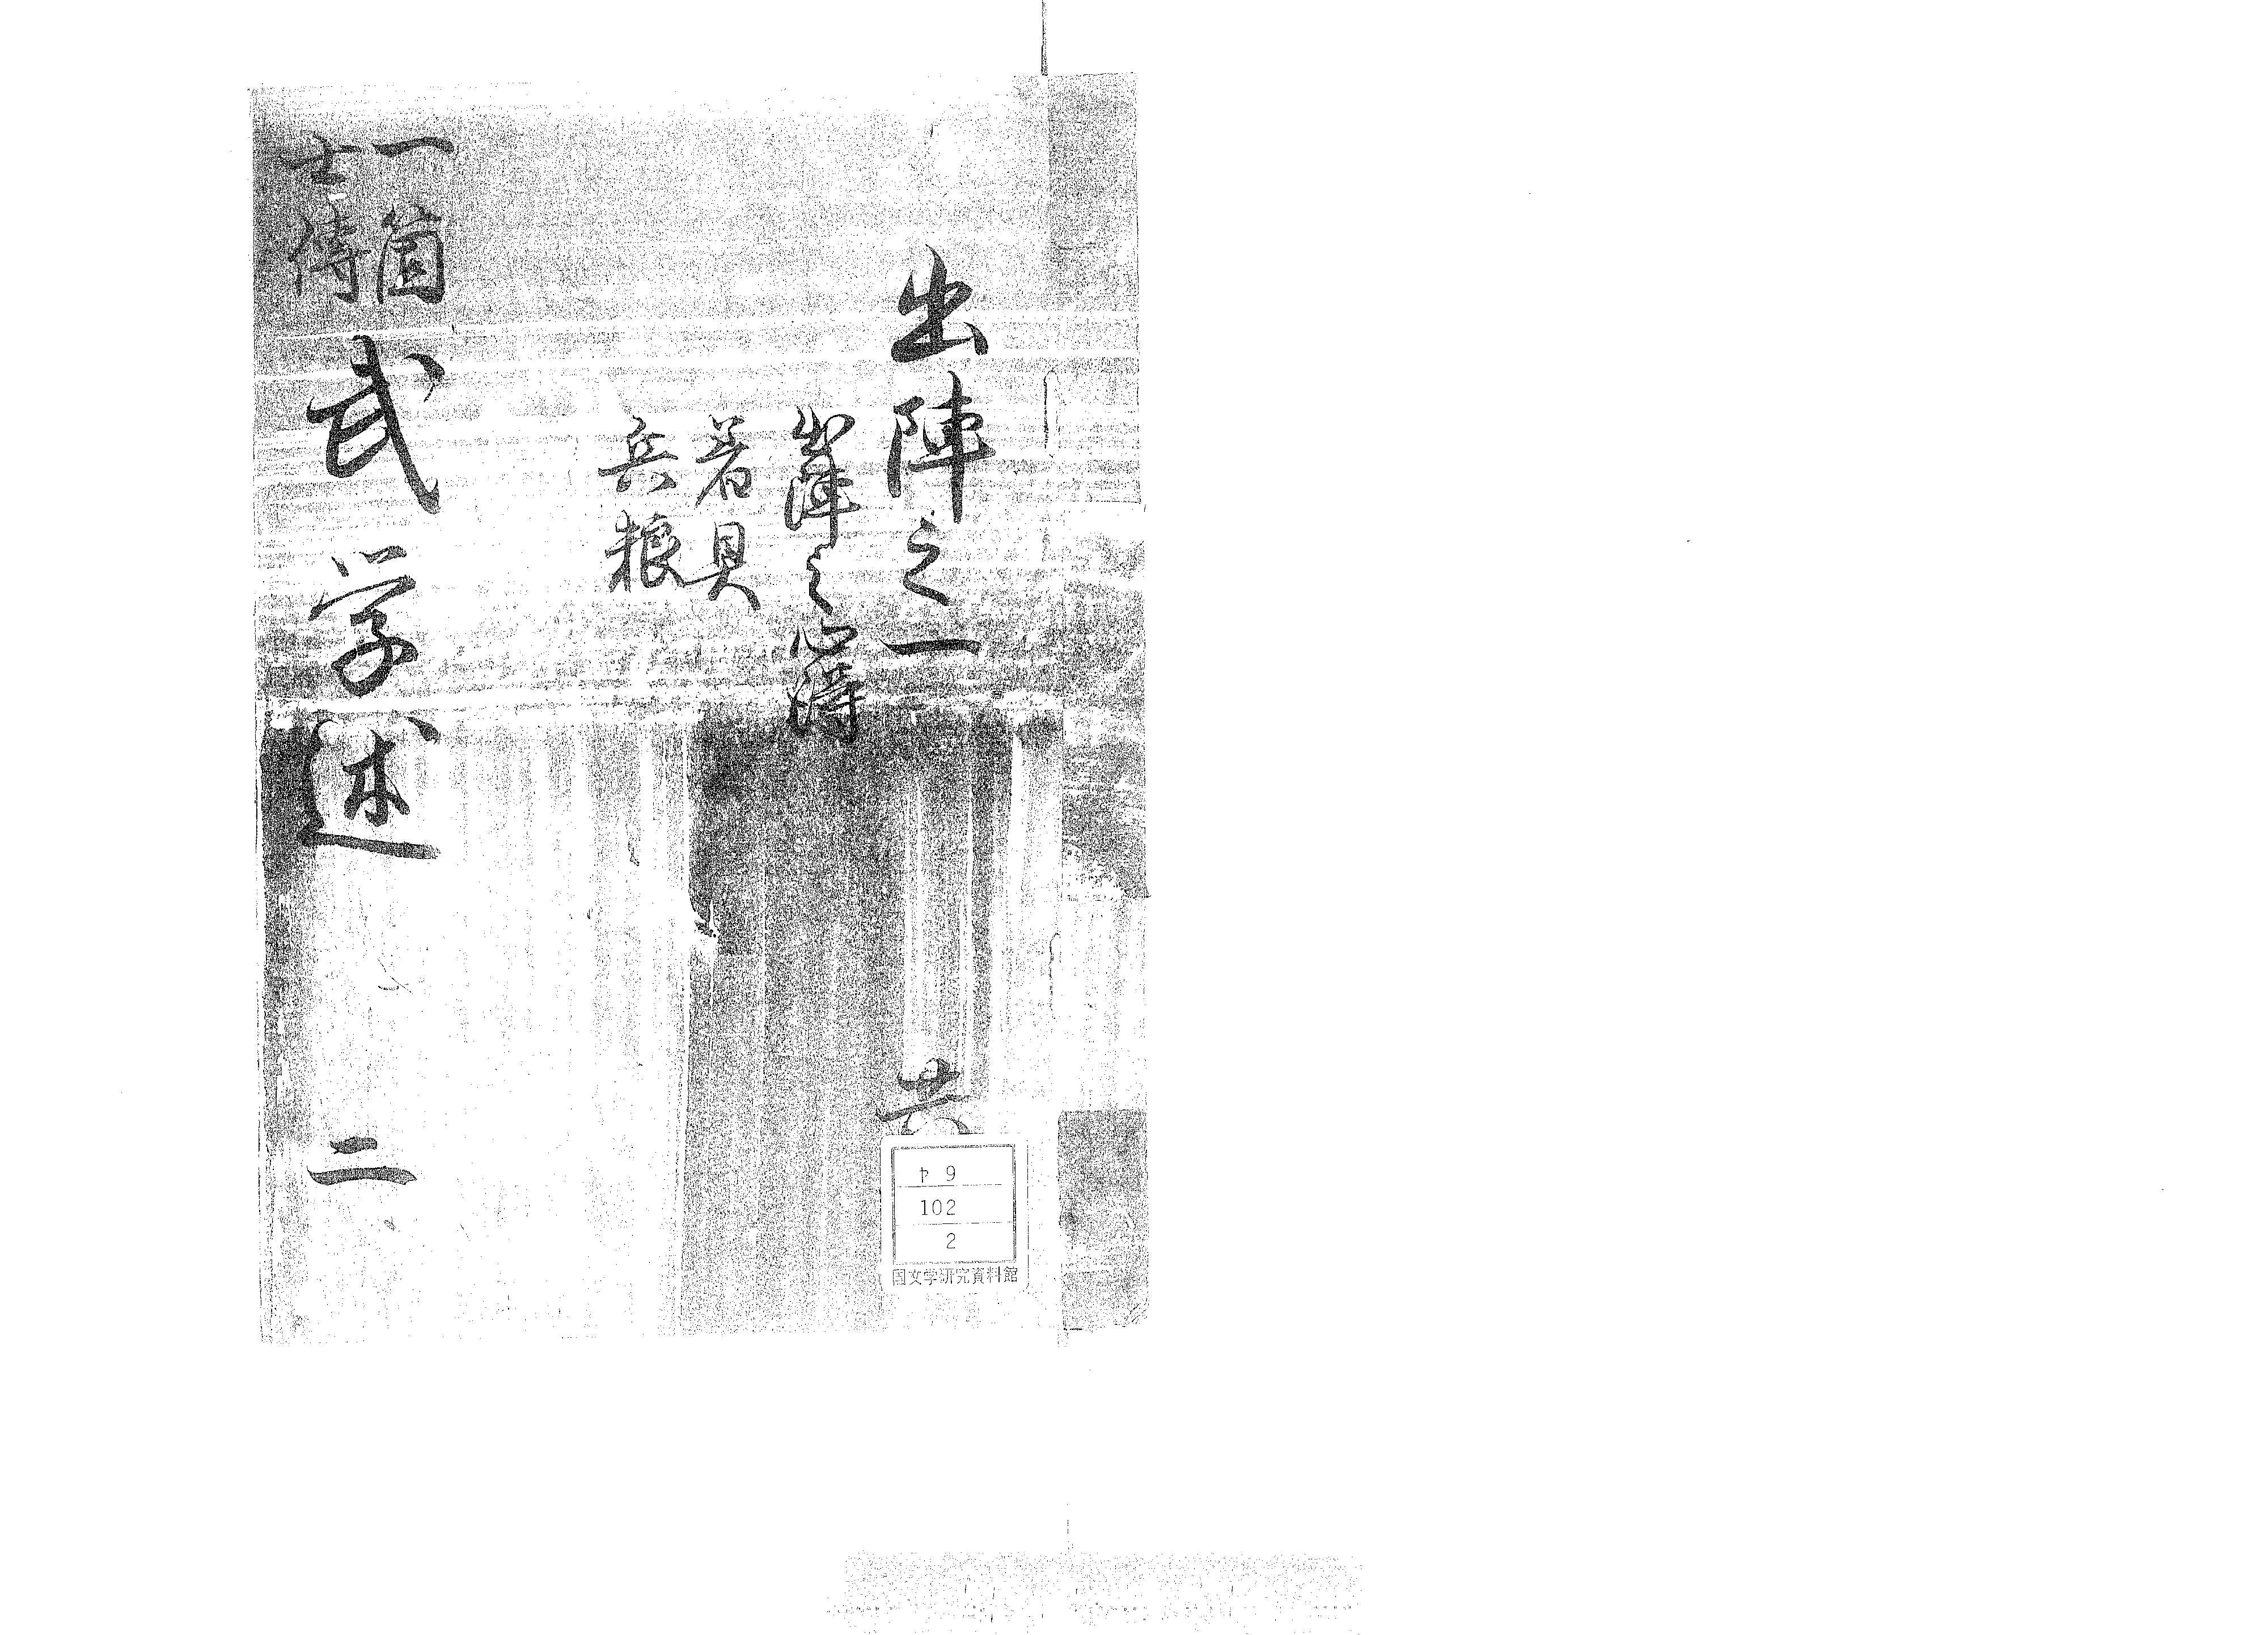 出陣之一
共
出陣之心得
着具
兵粮
一箇
士傳
武学述
二
ヤ9
102
2
国文学研究資料館